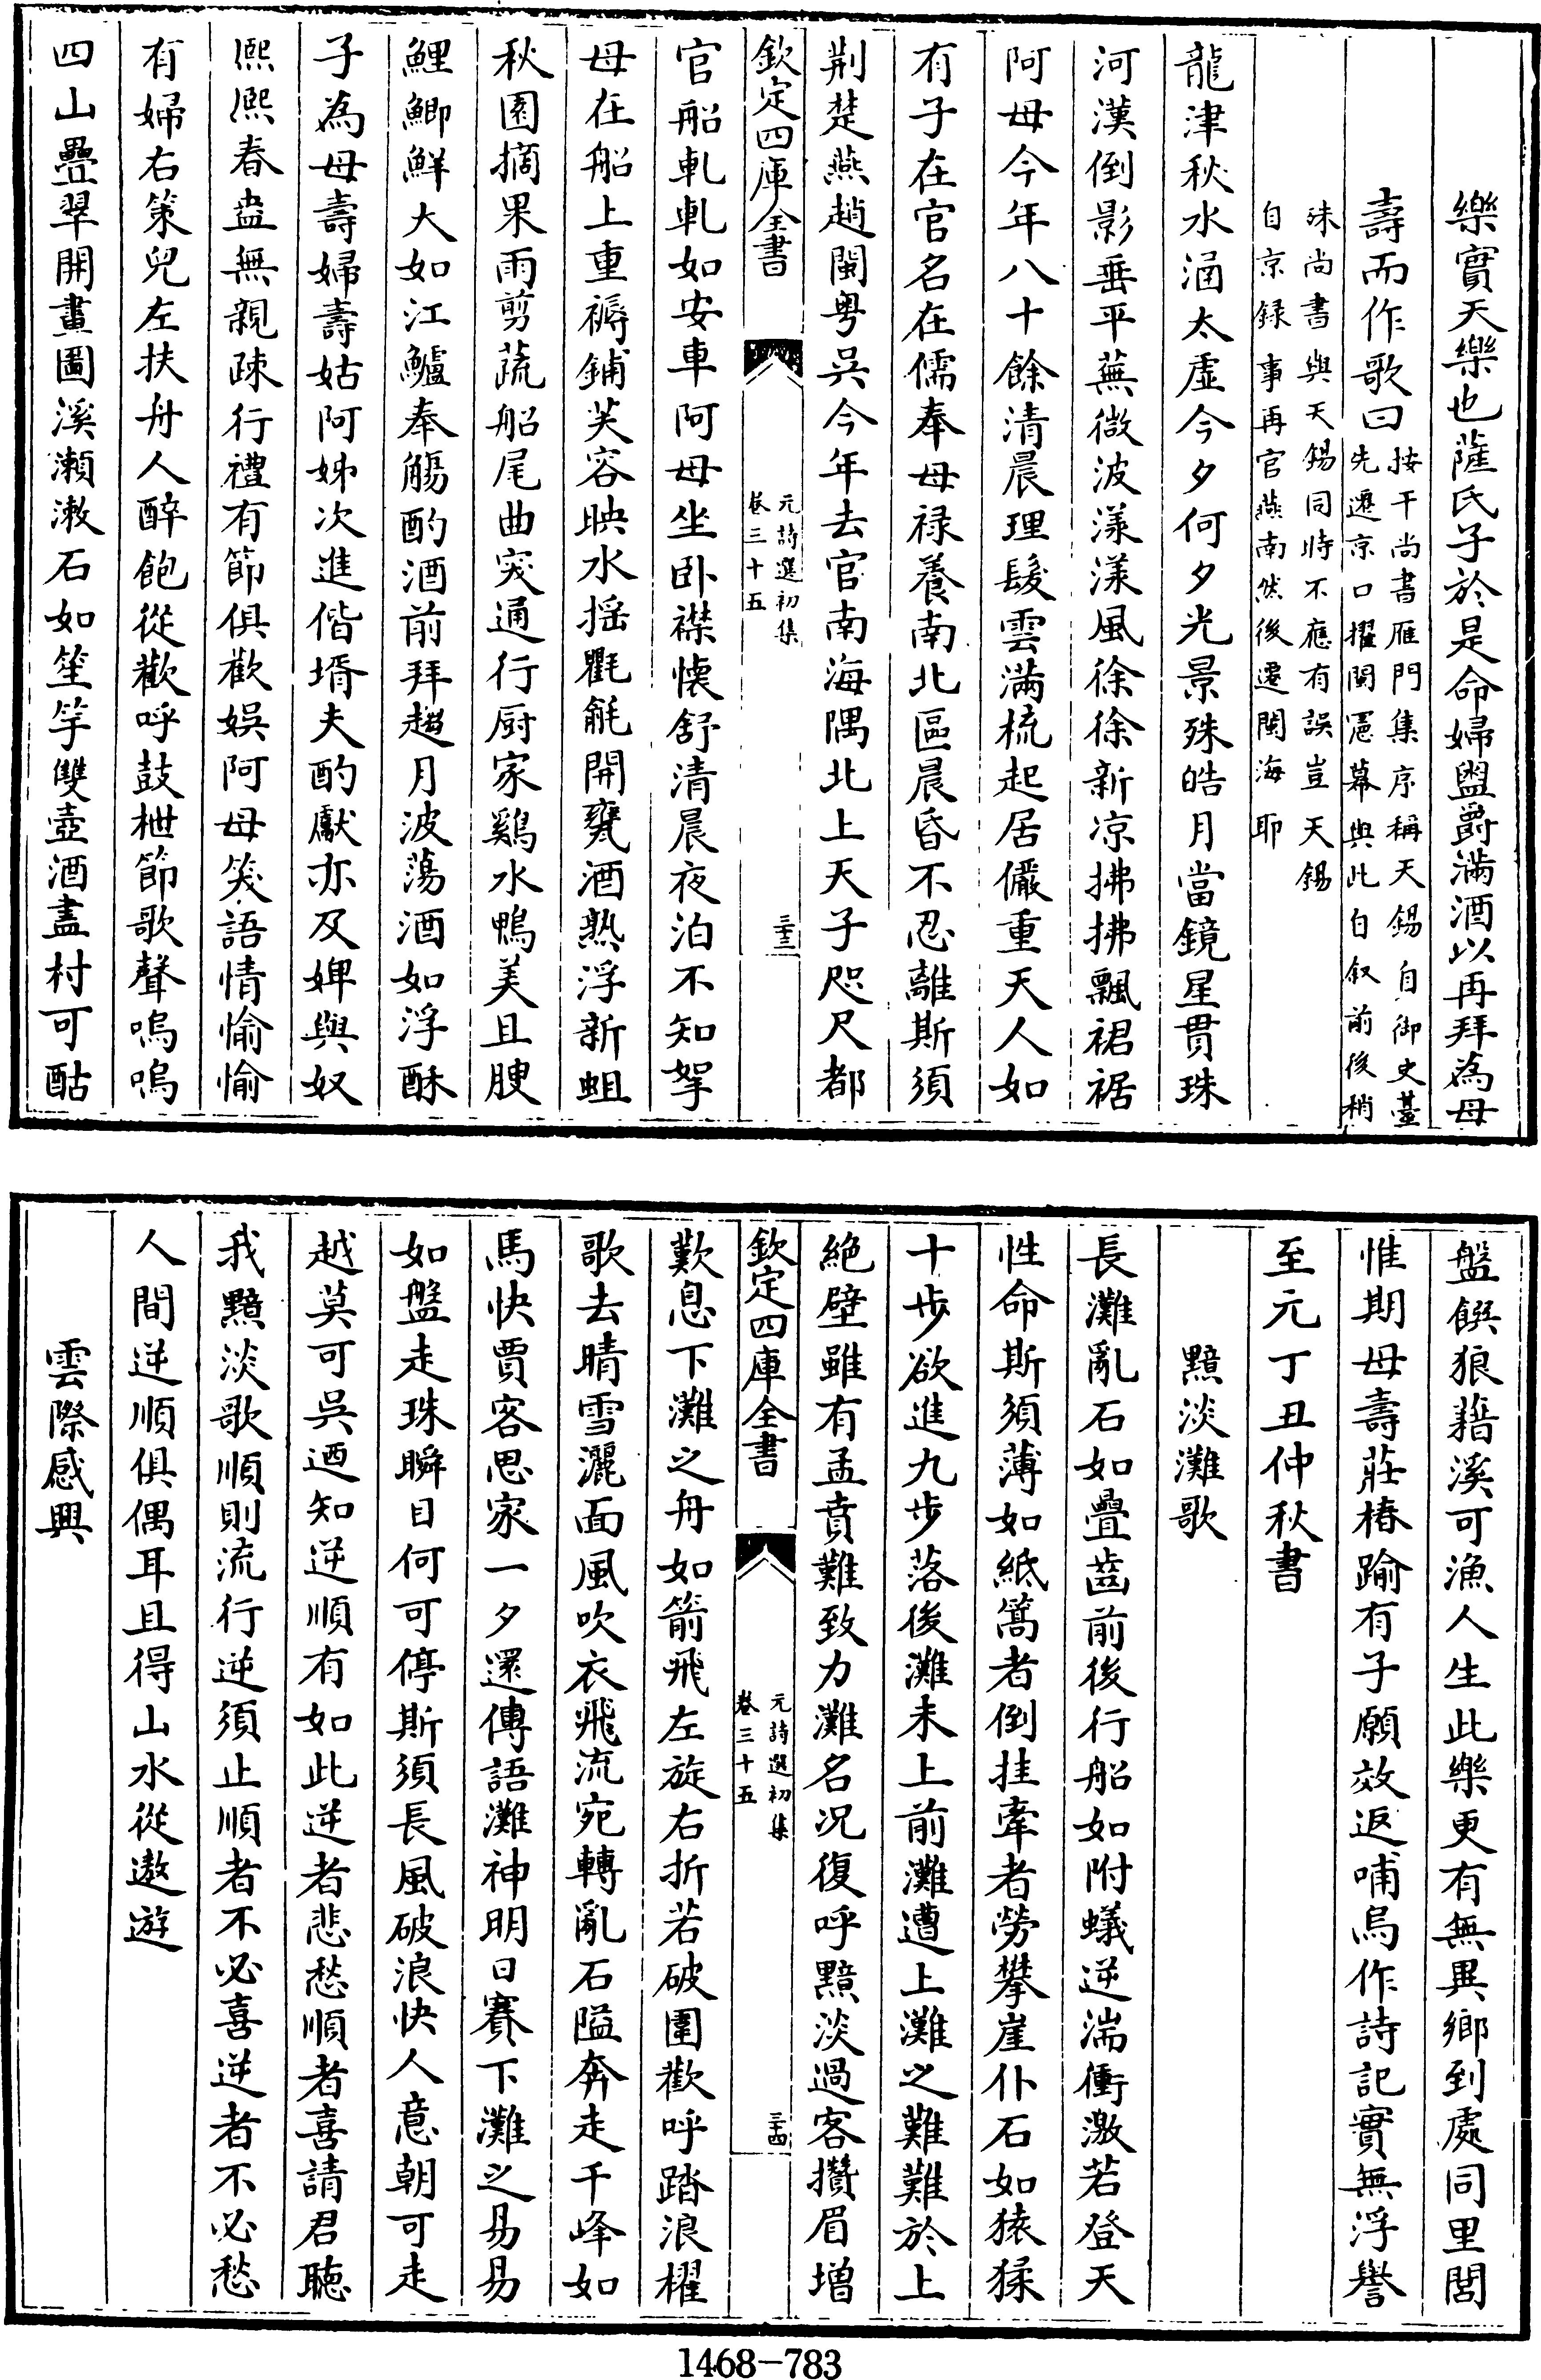 樂實天樂也薩氏子於是命婦盥爵滿酒以再拜為母
壽而作歌曰
按干尚書雁門集序稱天錫自御史臺
先遷京口擢閩憲幕與此自叙前後稍
殊尚書與天錫同時不應有誤豈天錫
自京録事再官燕南然後遷閩海耶
龍津秋水涵太虚今夕何夕光景殊皓月當鏡星貫珠
河漢倒影垂平蕪微波漾漾風徐徐新凉拂拂飄裙裾
阿母今年八十餘清晨理髮雲滿梳起居儼重天人如
有子在官名在儒奉母禄養南北區晨昏不忍離斯須
荆楚燕趙閩粤吳今年去官南海隅北上天子咫尺都
欽定四庫全書
元詩選初集
卷三十五
三十三
官船軋軋如安車阿母坐卧襟懐舒清晨夜泊不知拏
母在船上重褥鋪芙容映水揺氍毹開甕酒熟浮新蛆
秋園摘果雨剪蔬船尾曲突通行厨家鷄水鴨美且腴
鯉鯽鮮大如江鱸奉觴酌酒前拜趨月波蕩酒如浮酥
子為母壽婦壽姑阿姊次進偕壻夫酌獻亦及婢與奴
熈熈春盎無親疎行禮有節俱歡娱阿母笑語情愉愉
有婦右策兒左扶舟人醉飽從歡呼鼓枻節歌聲嗚嗚
四山疊翠開畫圖溪瀨漱石如笙竽雙壺酒盡村可酤
盤饌狼藉溪可漁人生此樂更有無異鄉到處同里閭
惟期母壽莊椿踰有子願效返哺烏作詩記實無浮譽
至元丁丑仲秋書
黯淡灘歌
長灘亂石如疊齒前後行船如附蟻逆湍衝激若登天
性命斯須薄如紙篙者倒挂牽者勞攀崖仆石如猿猱
十步欲進九步落後灘未上前灘遭上灘之難難於上
絶壁雖有孟賁難致力灘名况復呼黯淡過客攢眉增
欽定四庫全書
元詩選初集
卷三十五
三十四
歎息下灘之舟如箭飛左旋右折若破圍歡呼踏浪櫂
歌去晴雪灑面風吹衣飛流宛轉亂石隘奔走千峰如
馬快賈客思家一夕還傳語灘神明日賽下灘之易易
如盤走珠瞬目何可停斯須長風破浪快人意朝可走
越莫可吳迺知逆順有如此逆者悲愁順者喜請君聴
我黯淡歌順則流行逆須止順者不必喜逆者不必愁
人間逆順俱偶耳且得山水從遨遊
雲際感興
1468-783